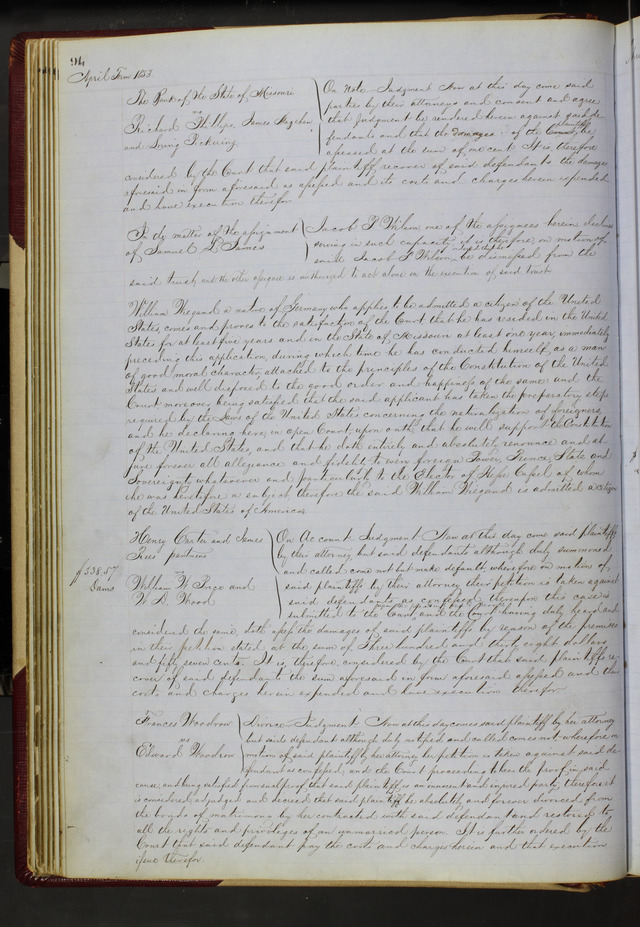 94
April Term 1853
The Bank of the State of Missouri
vs
Richard Phillips, James
and Loring Pickering
On Note Judgment Now at this day come said
parties by their attorneys and consent and agree
that Judgment be rendered herein against said de-
fendants and that the damages of the plaintiff be
assessed at the sum of one cent It is, therefore
considered by the Court that said plaintiff recover of said defendants the damages
aforesaid in form aforesaid as assessed and its costs and charges herein expended
and have execution therefor
In the matter of the assignment
of Samuel L James
Jacob S Wilson one of the assignees herein declines
serving in such capacity it is therefore on motion of
said Jacob S Wilson be dismissed from the
said trust, and the other assignee is authorized to act alone in the execution of said trust
William Wiegand a native of Germany who applies to be admitted a citizen of the United
States, comes and proves to the satisfaction of the Court that he has resided in the United
States for at least five years and in the State of Missouri at least one year, immediately
preceding this application, during which time he has conducted himself as a man
of good moral character, attached to the principles of the Constitution of the United
States and well disposed to the good order and happiness of the same and the
Court moreover being satisfied that the said applicant has taken the preparatory steps
required by the Laws of the United States concerning the naturalization of foreigners
and he declaring here, in open Court, upon oath that he will support the Constitution
of the United States, and that he doth entirely and absolutely renounce and ab-
jure forever all allegiance and fidelity to every foreign Power, Prince, State and
Sovereignty whatsoever and particularly to the Elector of Hesse Cassel of whom
he was heretofore a subject, therefore the said William Wiegand is admitted a citizen
of the United States of America
$338.57
Dams
Henry Carter and James
Rees partners
vs
William W Price and
W D Wood
On Account Judgment Now at this day come said plaintiffs
by their attorney but said defendants although duly summoned
and called come not but make default, wherefore on motion of
said plaintiffs by their attorney their petition is taken against
said defendants as confessed thereupon this case is
submitted to the Court, and the Court having duly heard and
considered the same, doth assess the damages of said plaintiffs by reason of the premises
in their petition stated at the sum of Three hundred and thirty eight dollars
and fifty seven cents. It is, therefore, considered by the Court that said plaintiffs re-
cover of said defendants the sum aforesaid in form aforesaid assessed and their
costs and charges herein expended and have execution therefor
Frances Woodrow
vs
Edward Woodrow
Divorce Judgment Now at this day comes said plaintiff by her attorney
but said defendant although duly notified and called comes not wherefore on
motion of said plaintiff by her attorney her petition is taken against said de-
fendant as confessed, and the Court proceeding to hear the proof in said
cause, and being satisfied from said proof that said plaintiff is an innocent and injured party, therefore it
is considered, adjudged and decreed that said plaintiff be absolutely and forever divorced from
the bonds of matrimony by her contracted with said defendant and restored to
all the rights and privileges of an unmarried person. It is further ordered by the
Court that said defendant pay the costs and charges herein and that execution
issue therefor.